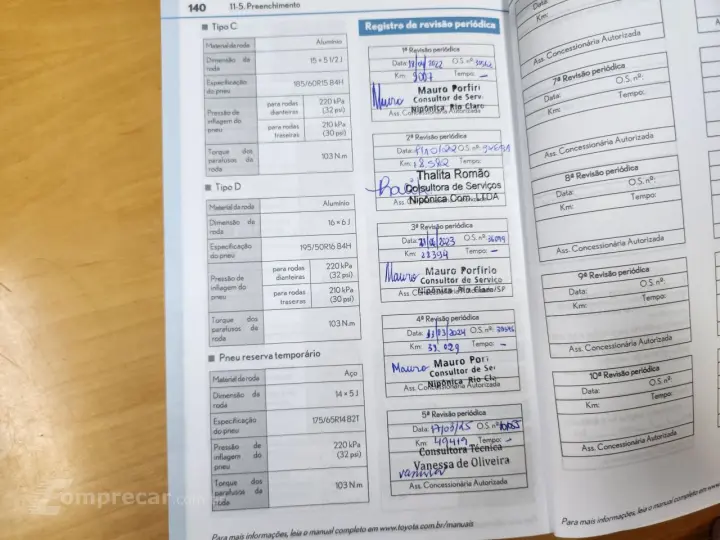 140 11-5. Preenchimento
Tipo C
Material da roda Alumínio
Dimensão da roda 15 × 5 1/2 J
Especificação do pneu 185/60R15 84H
Pressão de inflagem do pneu
para rodas dianteiras 220 kPa (32 psi)
para rodas traseiras 210 kPa (30 psi)
Torque dos parafusos da roda 103 N.m
Tipo D
Material da roda Alumínio
Dimensão da roda 16 × 6 J
Especificação do pneu 195/50R16 84H
Pressão de inflagem do pneu
para rodas dianteiras 220 kPa (32 psi)
para rodas traseiras 210 kPa (30 psi)
Torque dos parafusos da roda 103 N.m
Pneu reserva temporário
Material da roda Aço
Dimensão da roda 14 × 5 J
Especificação do pneu 175/65R14 82T
Pressão de inflagem do pneu 220 kPa (32 psi)
Torque dos parafusos da roda 103 N.m
Para mais informações, leia o manual completo em www.toyota.com.br/manuais
Registro de revisão periódica
1ª Revisão periódica
Data: O.S. nº:
Km: 9007 Tempo: -
Mauro
Mauro Porfiri
Consultor de Serv
Nipônica Rio Claro
Ass. Concessionária Autorizada
2ª Revisão periódica
Data: O.S. nº:
Km: 18.582 Tempo:
Thalita Romão
Consultora de Serviços
Nipônica Com. LTDA
3ª Revisão periódica
Data: O.S. nº:
Km: 28394 Tempo: -
Mauro
Mauro Porfirio
Consultor de Serviço
Nipônica Rio Claro/SP
Ass. Concessionária Autorizada
4ª Revisão periódica
Data: O.S. nº:
Km: Tempo: -
Mauro
Mauro Pori
Consultor de Sei
Nipônica Rio Cla
5ª Revisão periódica
Data: O.S. nº:
Km: 49419 Tempo: -
Consultora Técnica
Vanessa de Oliveira
Ass. Concessionária Autorizada
Km:
Ass. Concessionária Autorizada
7ª Revisão periódica
Data: O.S. nº:
Km: Tempo:
Ass. Concessionária Autorizada
8ª Revisão periódica
Data: O.S. nº:
Km: Tempo:
Ass. Concessionária Autorizada
9ª Revisão periódica
Data: O.S. nº:
Km: Tempo:
Ass. Concessionária Autorizada
10ª Revisão periódica
Data: O.S. nº:
Km: Tempo:
Ass. Concessionária Autorizada
Para mais informações, leia o manual completo em www
Comprecar.com